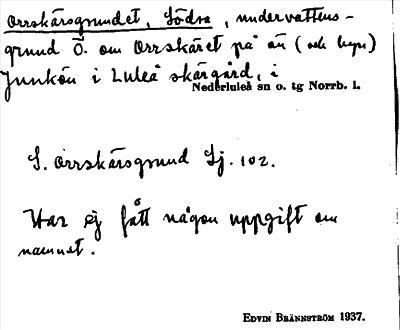 Orrskärsgrundet, Södra, undervattens-
grund Ö. om Orrskäret på ön (och hmn)
Junkön i Luleå skärgård, i
Nederluleå sn o. tg Norrb. l.
S. Orrskärsgrund Sj. 102.
Har ej fått någon uppgift om
namnet.
EDVIN BRÄNNSTRÖM 1937.